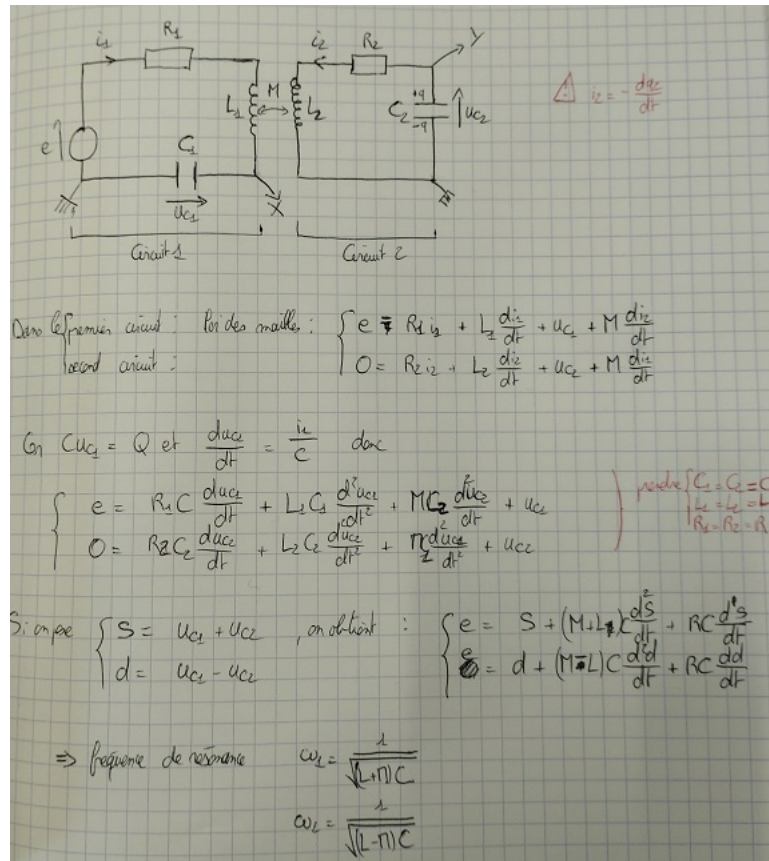 i₁ R₁ i₂ R₂ Y
⚠ i₂ = - dq₂/dt
e L₁ M L₂ C₂ +q -q uc₂
C₁
uc₁ X
Circuit 1 Circuit 2
Dans le premier circuit : loi des mailles : { e = R₁ i₁ + L₁ di₁/dt + uc₁ + M di₂/dt
second circuit : { 0 = R₂ i₂ + L₂ di₂/dt + uc₂ + M di₁/dt
On Cuc₁ = Q et duc₁/dt = i₁/C donc
{ e = R₁C duc₁/dt + L₁C₁ d²uc₁/dt² + MC₂ d²uc₂/dt + uc₁
{ 0 = R₂C₂ duc₂/dt + L₂C₂ d²uc₂/dt² + MC d²uc₁/dt² + uc₂
prendre { C₁ = C₂ = C
L₁ = L₂ = L
R₁ = R₂ = R
Si on pose { S = uc₁ + uc₂ , on obtient : { e = S + (M+L)C d²S/dt + RC dS/dt
{ d = uc₁ - uc₂ { e = d + (M-L)C d²d/dt + RC dd/dt
⇒ fréquence de résonance ω₁ = 1/√(L+M)C
ω₂ = 1/√(L-M)C